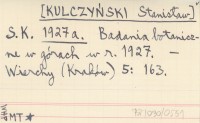 [KULCZYŃSKI Stanisław]
S.K. 1927a. Badania botanicz-
ne w górach w r. 1927. —
Wierchy (Kraków) 5: 163.
MT*